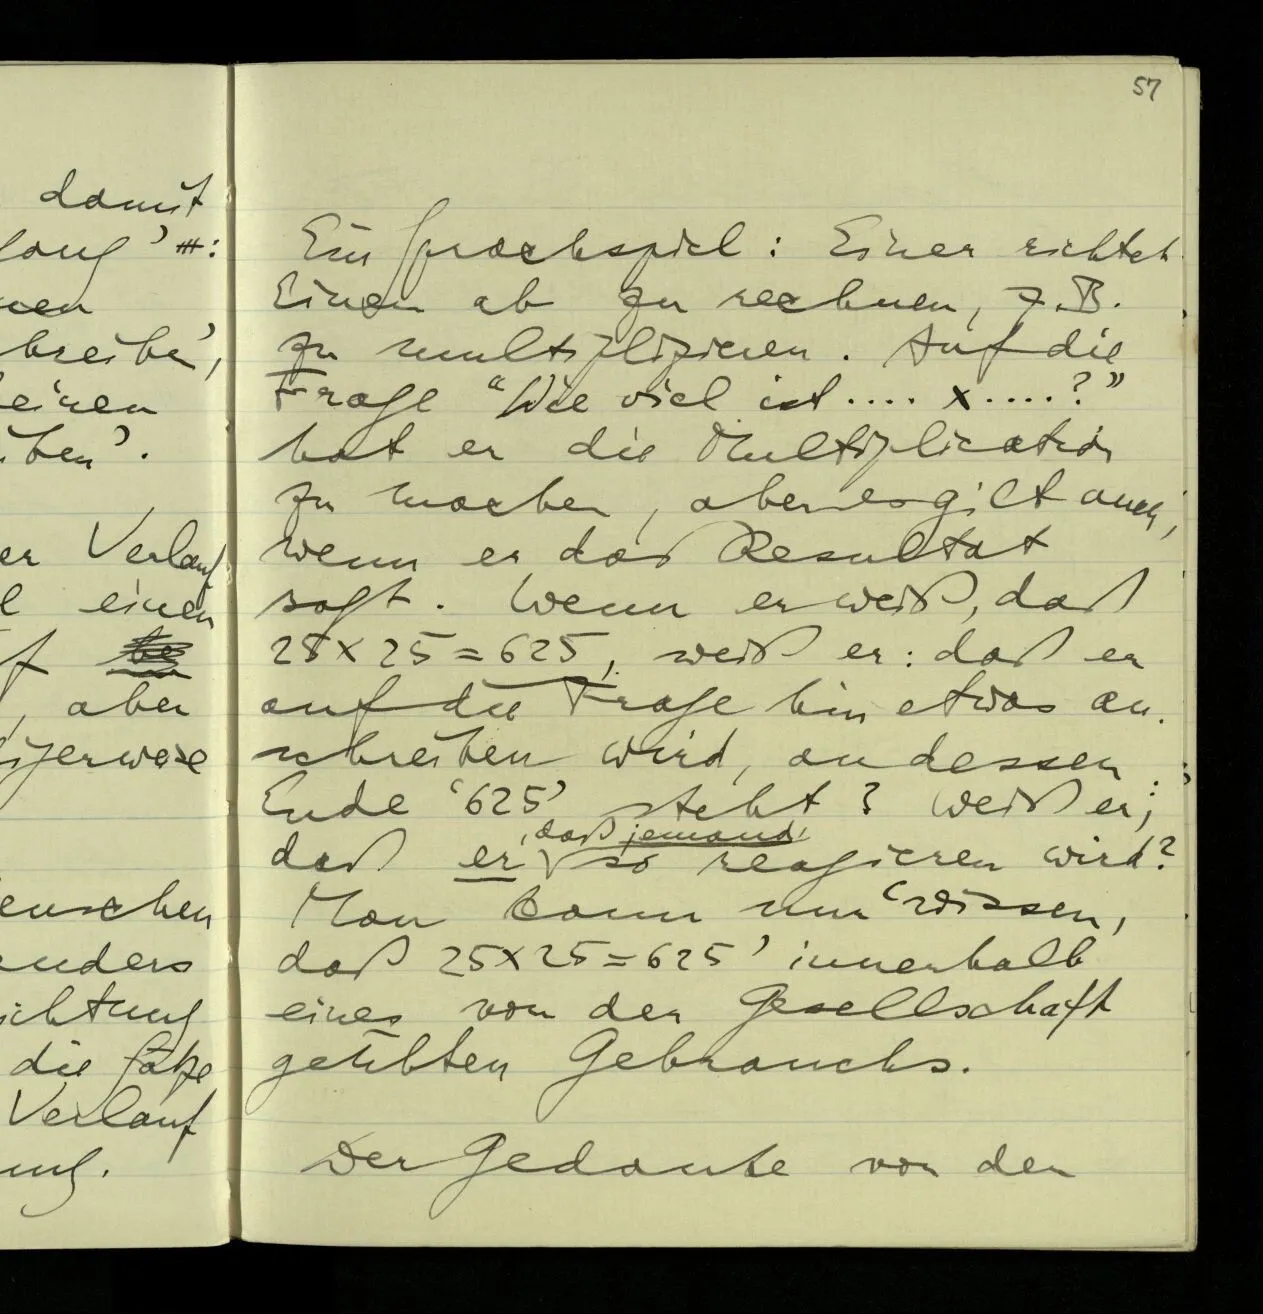 damit
:
breibe',
einen
ben'.
er Verlauf
einen
f
, aber
erweise
enschen
anders
ichtung
die Sätze
Verlauf
ung.
57
Ein Sprachspiel: Einer richtet
Einen ab zu rechnen, z.B.
zu multiplizieren. Auf die
Frage "Wie viel ist .... x .....?"
hat er die Multiplication
zu machen, aber es gilt auch,
wenn er das Resultat
sagt. Wenn er weiß, daß
25x25=625, weiß er: daß er
auf die Frage hin etwas an-
schreiben wird, an dessen
Ende '625' steht? Weiß er,
daß er, daß jemand, so reagieren wird?
Man kann nur 'wissen,
daß 25x25=625' innerhalb
eines von der Gesellschaft
geübten Gebrauchs.
Der Gedanke von der